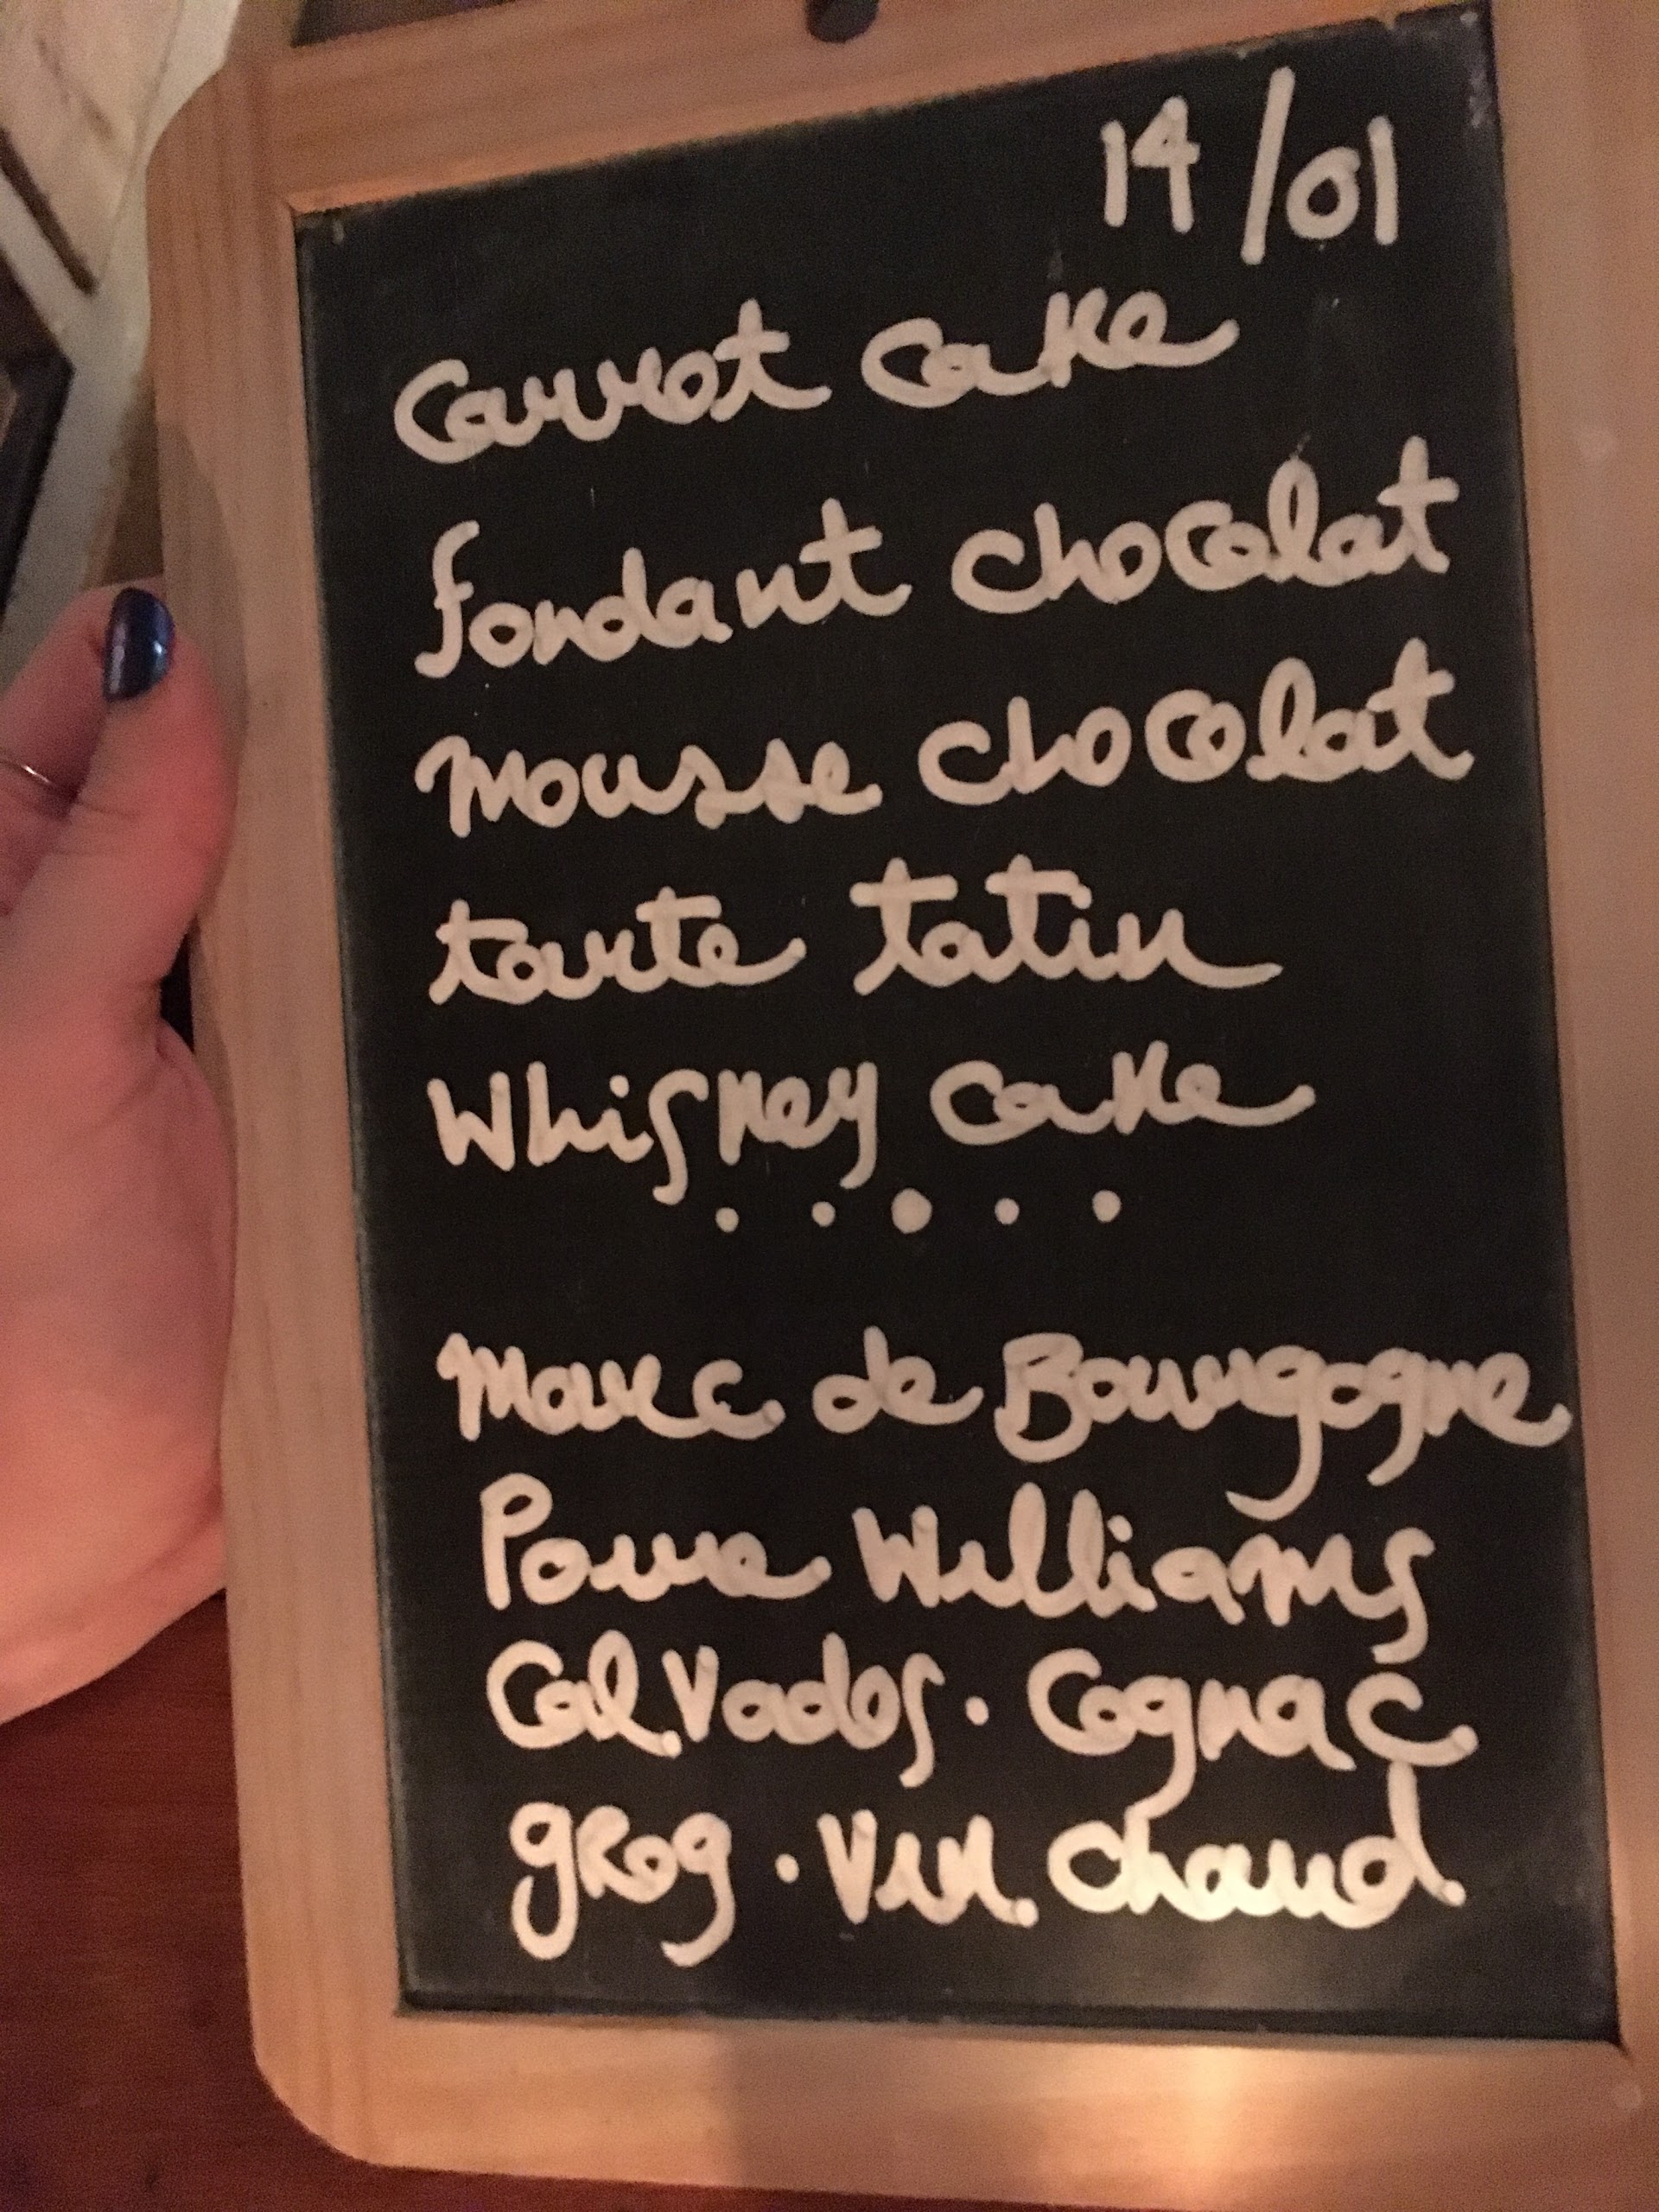 14/01
Carrot cake
fondant chocolat
Mousse chocolat
tarte tatin
Whiskey cake
.....
Marc de Bourgogne
Poire Williams
Calvados . Cognac
grog . Vin chaud